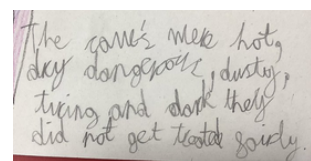 The cave's were hot,
dry dangerous, dusty,
tiring and dark they
did not get treated fairly.